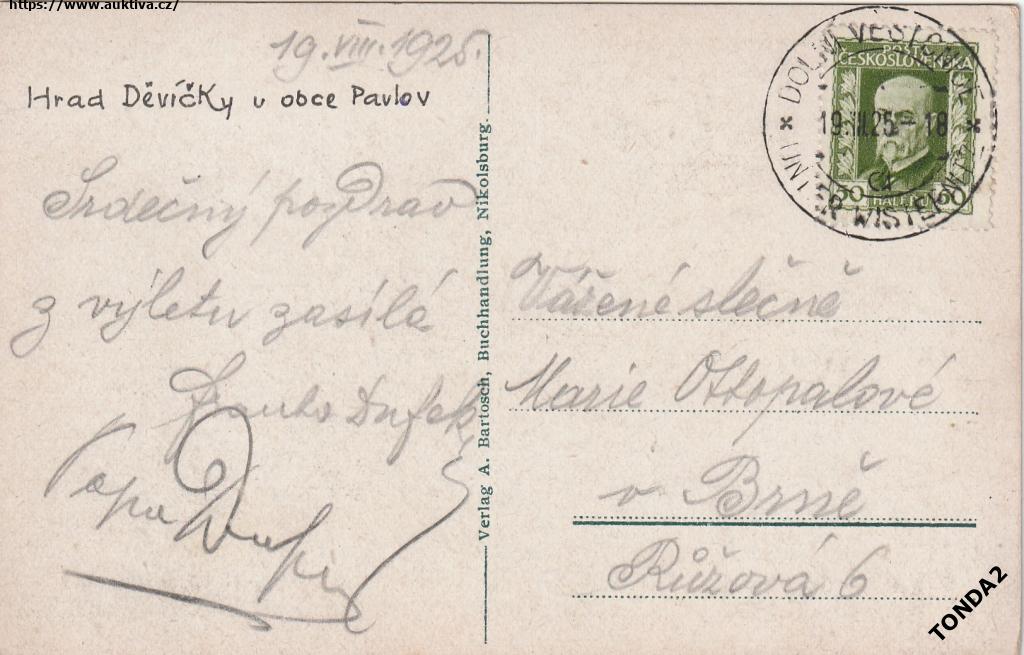 https://www.auktiva.cz/
19.VIII.1925.
Hrad Děvíčky u obce Pavlov
Srdečný pozdrav
z výletu zasílá
Dufek
Papa Dufek
Verlag A. Bartosch, Buchhandlung, Nikolsburg.
DOLNÍ VĚSTONICE
UNTER WISTERNITZ
19.VIII.25-18
POŠTA
ČESKOSLOVENSKÁ
50 HALÉŘŮ 50
Vážené slečně
Marie Ottopalové
v Brně
Růžová 6
TONDA2